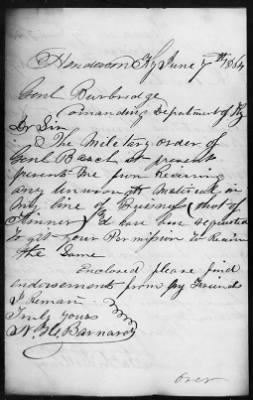 Henderson Ky June 7th 1864
Genl Burbridge
Comanding Department of Ky
Dr Sir
The Military order of
Genl at present
prevents me from Receiving
any unwrought Material in
my line of Buisness (that of
Tinner) I'd have been requested
to get your Permission to Receive
the Same
Enclosed please find
endorsements from my Friends
I Remain
Truly Yours
W. H. Barnard
over